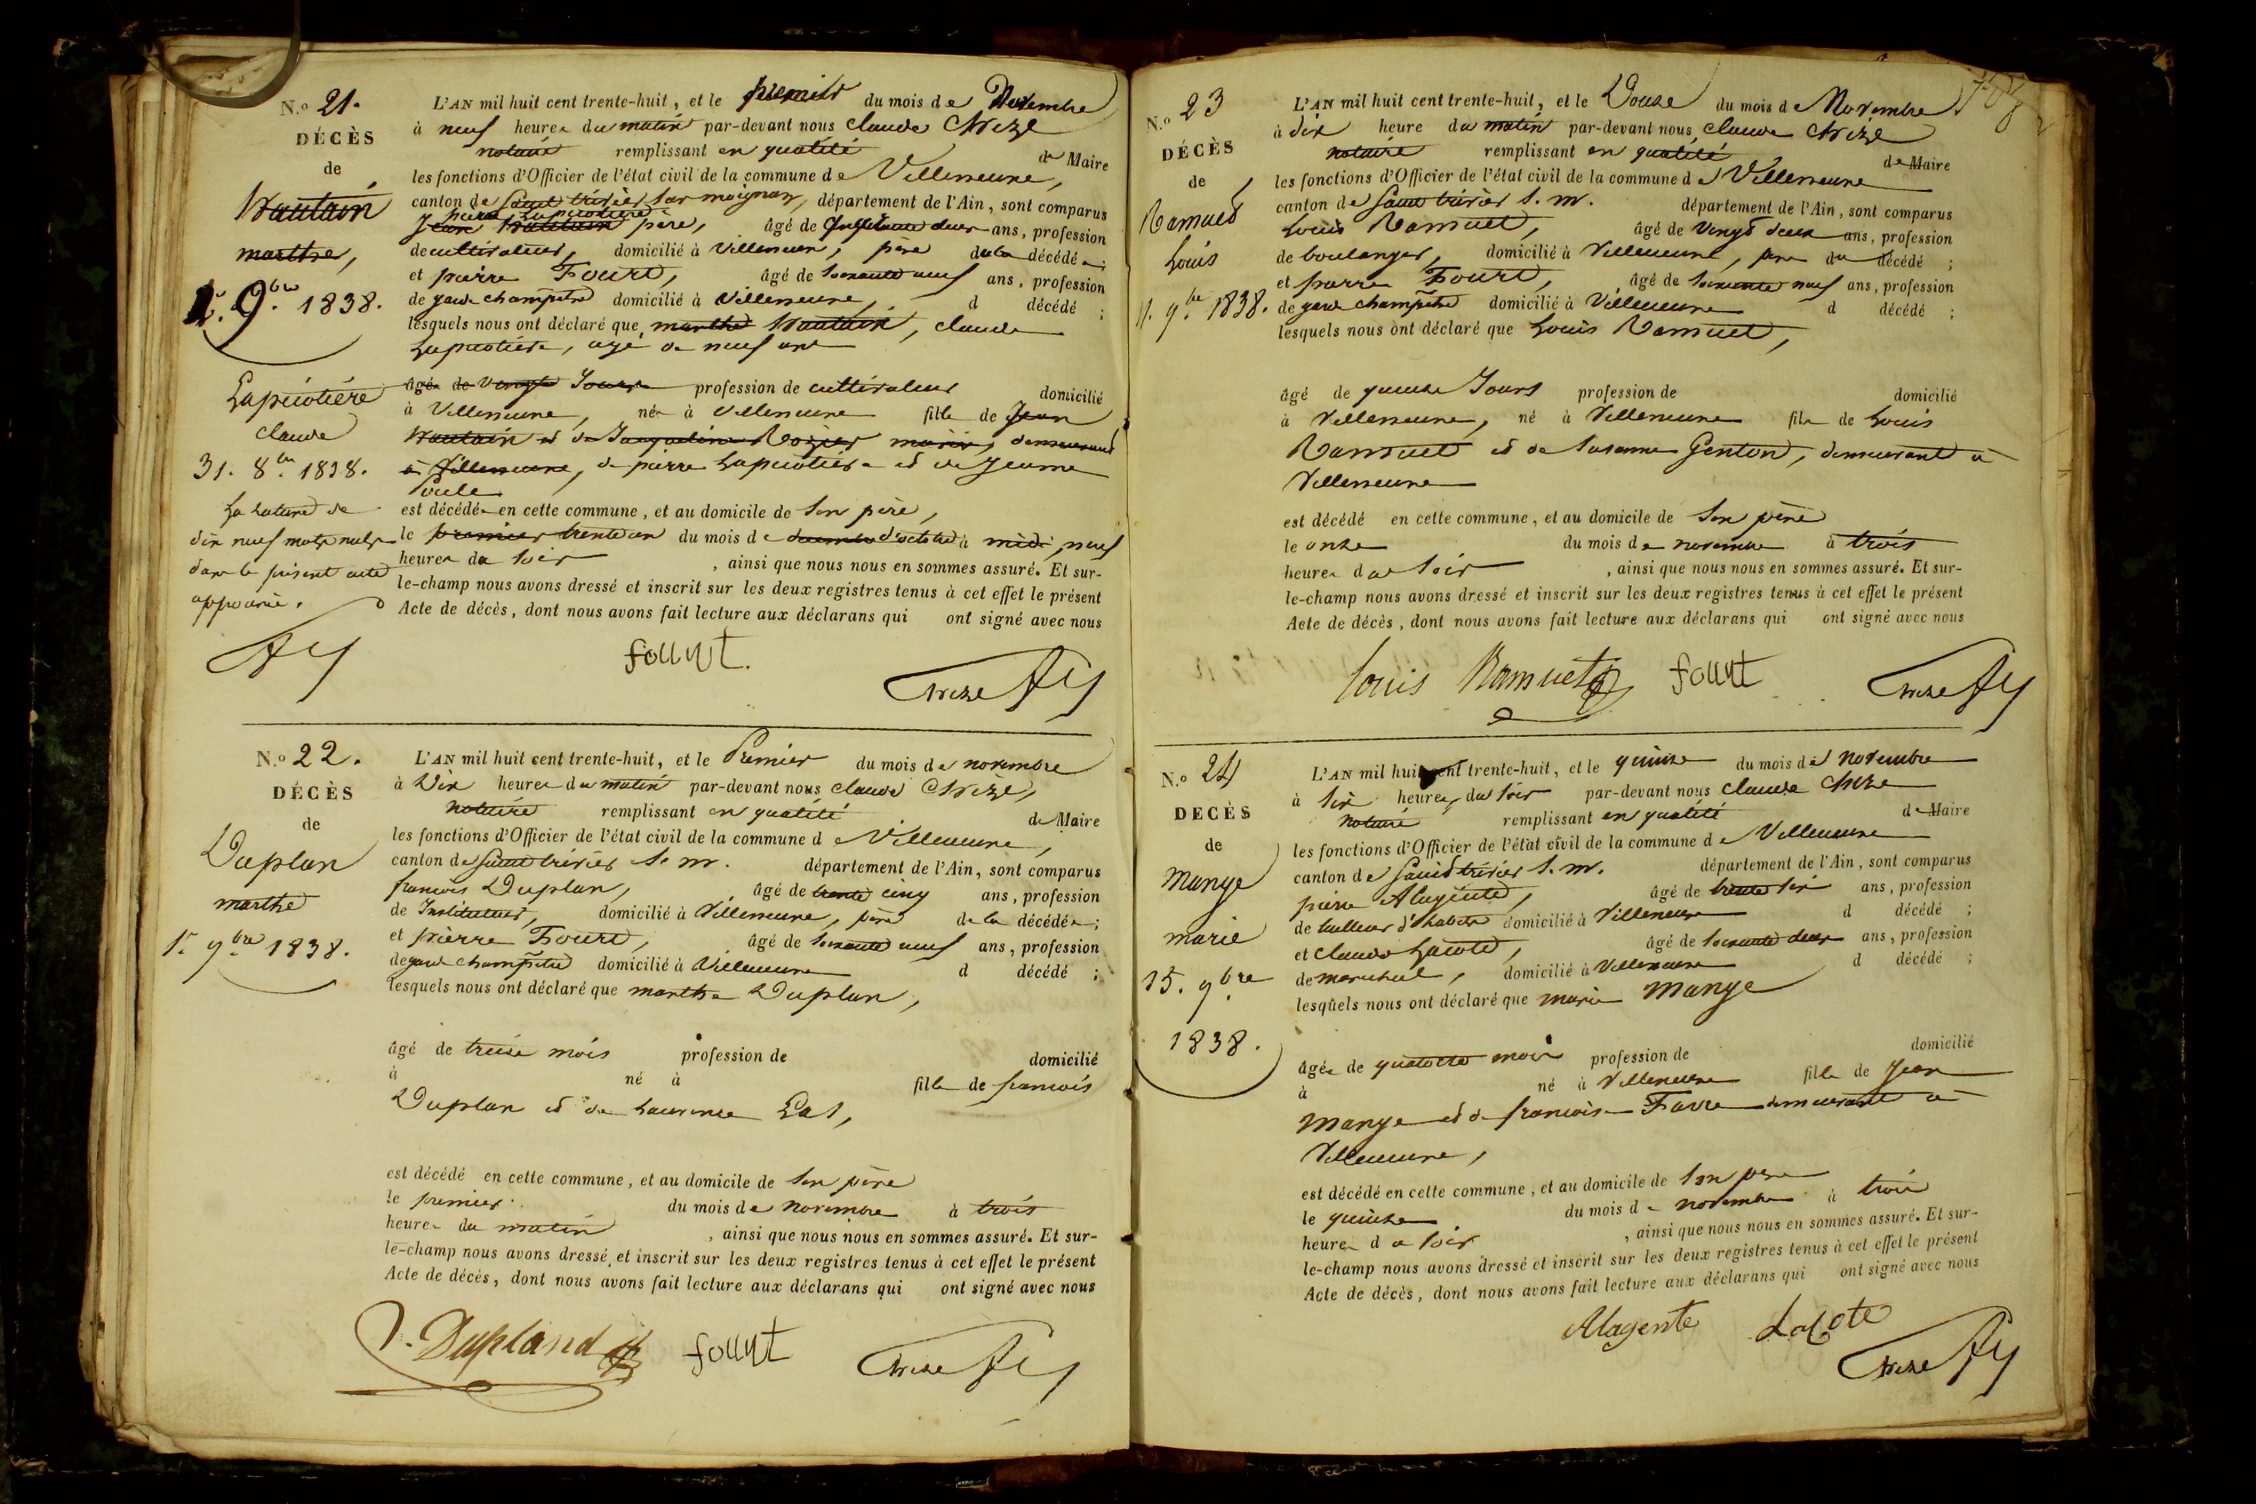 N.o 21.
DÉCÈS
de
marthe,
9.bre 1838.
Lapicotière
claude
31. 8.bre 1838.
La rature de
dix neuf mots nuls
dans le présent acte
approuvé.
L'AN mil huit cent trente-huit, et le premier du mois de Novembre
à neuf heures du matin par-devant nous claude
notaire remplissant en qualité de Maire
les fonctions d'Officier de l'état civil de la commune de Villeneuve,
canton de Saint trivier sur moignan, département de l'Ain, sont comparus
pierre Lapicotière
Jean père, âgé de deux ans, profession
de cultivateur, domicilié à Villeneuve, père de la décédée;
et pierre Fourt, âgé de soixante neuf ans, profession
de garde champêtre domicilié à Villeneuve, d décédé ;
lesquels nous ont déclaré que marthe , claude
Lapicotière, agé de neuf ans
âgée de vingt Jours profession de cultivateur domicilié
à Villeneuve, née à Villeneuve fille de Jean
et de Jacqueline Rozier mariés, demeurant
à Villeneuve, de pierre Lapicotière et de Jeanne
est décédée en cette commune, et au domicile de son père,
le premier trente un du mois de d'octobre à midi, neuf
heures du soir, ainsi que nous nous en sommes assuré. Et sur-
le-champ nous avons dressé et inscrit sur les deux registres tenus à cet effet le présent
Acte de décès, dont nous avons fait lecture aux déclarans qui ont signé avec nous
fourt.
N.o 22.
DÉCÈS
de
Duplan
marthe
1.er 9.bre 1838.
L'AN mil huit cent trente-huit, et le Premier du mois de novembre
à Dix heures du matin par-devant nous claude
notaire remplissant en qualité de Maire
les fonctions d'Officier de l'état civil de la commune de Villeneuve,
canton de Saint trivier s. m. département de l'Ain, sont comparus
francois Duplan, âgé de trente cinq ans, profession
de Instituteur, domicilié à Villeneuve, père de la décédée;
et pierre Fourt, âgé de soixante neuf ans, profession
de garde champêtre domicilié à Villeneuve d décédé ;
lesquels nous ont déclaré que marthe Duplan,
âgé de treize mois profession de domicilié
à né à fille de francois
Duplan et de Laurence Lat,
est décédé en cette commune, et au domicile de son père
le premier du mois de novembre à trois
heures du matin, ainsi que nous nous en sommes assuré. Et sur-
le-champ nous avons dressé et inscrit sur les deux registres tenus à cet effet le présent
Acte de décès, dont nous avons fait lecture aux déclarans qui ont signé avec nous
Dupland fourt
N.o 23
DÉCÈS
de
Ramuet
Louis
11. 9.bre 1838.
L'AN mil huit cent trente-huit, et le Douze du mois de Novembre
à dix heure du matin par-devant nous claude
notaire remplissant en qualité de Maire
les fonctions d'Officier de l'état civil de la commune de Villeneuve
canton de Saint trivier s. m. département de l'Ain, sont comparus
Louis Ramuet, âgé de vingt deux ans, profession
de boulanger, domicilié à Villeneuve, père du décédé ;
et pierre Fourt, âgé de soixante neuf ans, profession
de garde champêtre domicilié à Villeneuve d décédé ;
lesquels nous ont déclaré que Louis Ramuet,
âgé de quinze Jours profession de domicilié
à Villeneuve, né à Villeneuve fils de Louis
Ramuet et de Susanne Genton, demeurant à
Villeneuve
est décédé en cette commune, et au domicile de son père
le onze du mois de novembre à trois
heures du soir, ainsi que nous nous en sommes assuré. Et sur-
le-champ nous avons dressé et inscrit sur les deux registres tenus à cet effet le présent
Acte de décès, dont nous avons fait lecture aux déclarans qui ont signé avec nous
Louis Ramuet fourt
N.o 24
DECÈS
de
mange
marie
15. 9bre
1838.
L'AN mil huit cent trente-huit, et le quinze du mois de novembre
à six heures du soir par-devant nous claude
notaire remplissant en qualité de Maire
les fonctions d'Officier de l'état civil de la commune de Villeneuve
canton de Saint trivier s. m. département de l'Ain, sont comparus
pierre Alagente, âgé de trente six ans, profession
de tailleur d'habits domicilié à Villeneuve d décédé ;
et claude Lacote, âgé de soixante deux ans, profession
de marechal, domicilié à Villeneuve d décédé ;
lesquels nous ont déclaré que marie mange
âgée de quatorze mois profession de domicilié
à né à Villeneuve fille de Jean
mange et de francoise Favre demeurant à
Villeneuve,
est décédé en cette commune, et au domicile de son père
le quinze du mois de novembre à trois
heures du soir, ainsi que nous nous en sommes assuré. Et sur-
le-champ nous avons dressé et inscrit sur les deux registres tenus à cet effet le présent
Acte de décès, dont nous avons fait lecture aux déclarans qui ont signé avec nous
Alagente Lacote